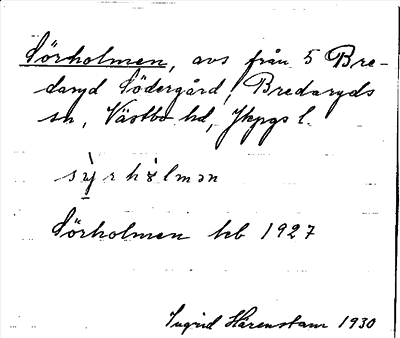 Sörholmen, avs från 5 Bre-
daryd Södergård, Bredaryds
sn, Västbo hd, Jkpgs l.
sỳrhòlmən
Sörholmen hb 1927
Ingrid Härenstam 1930